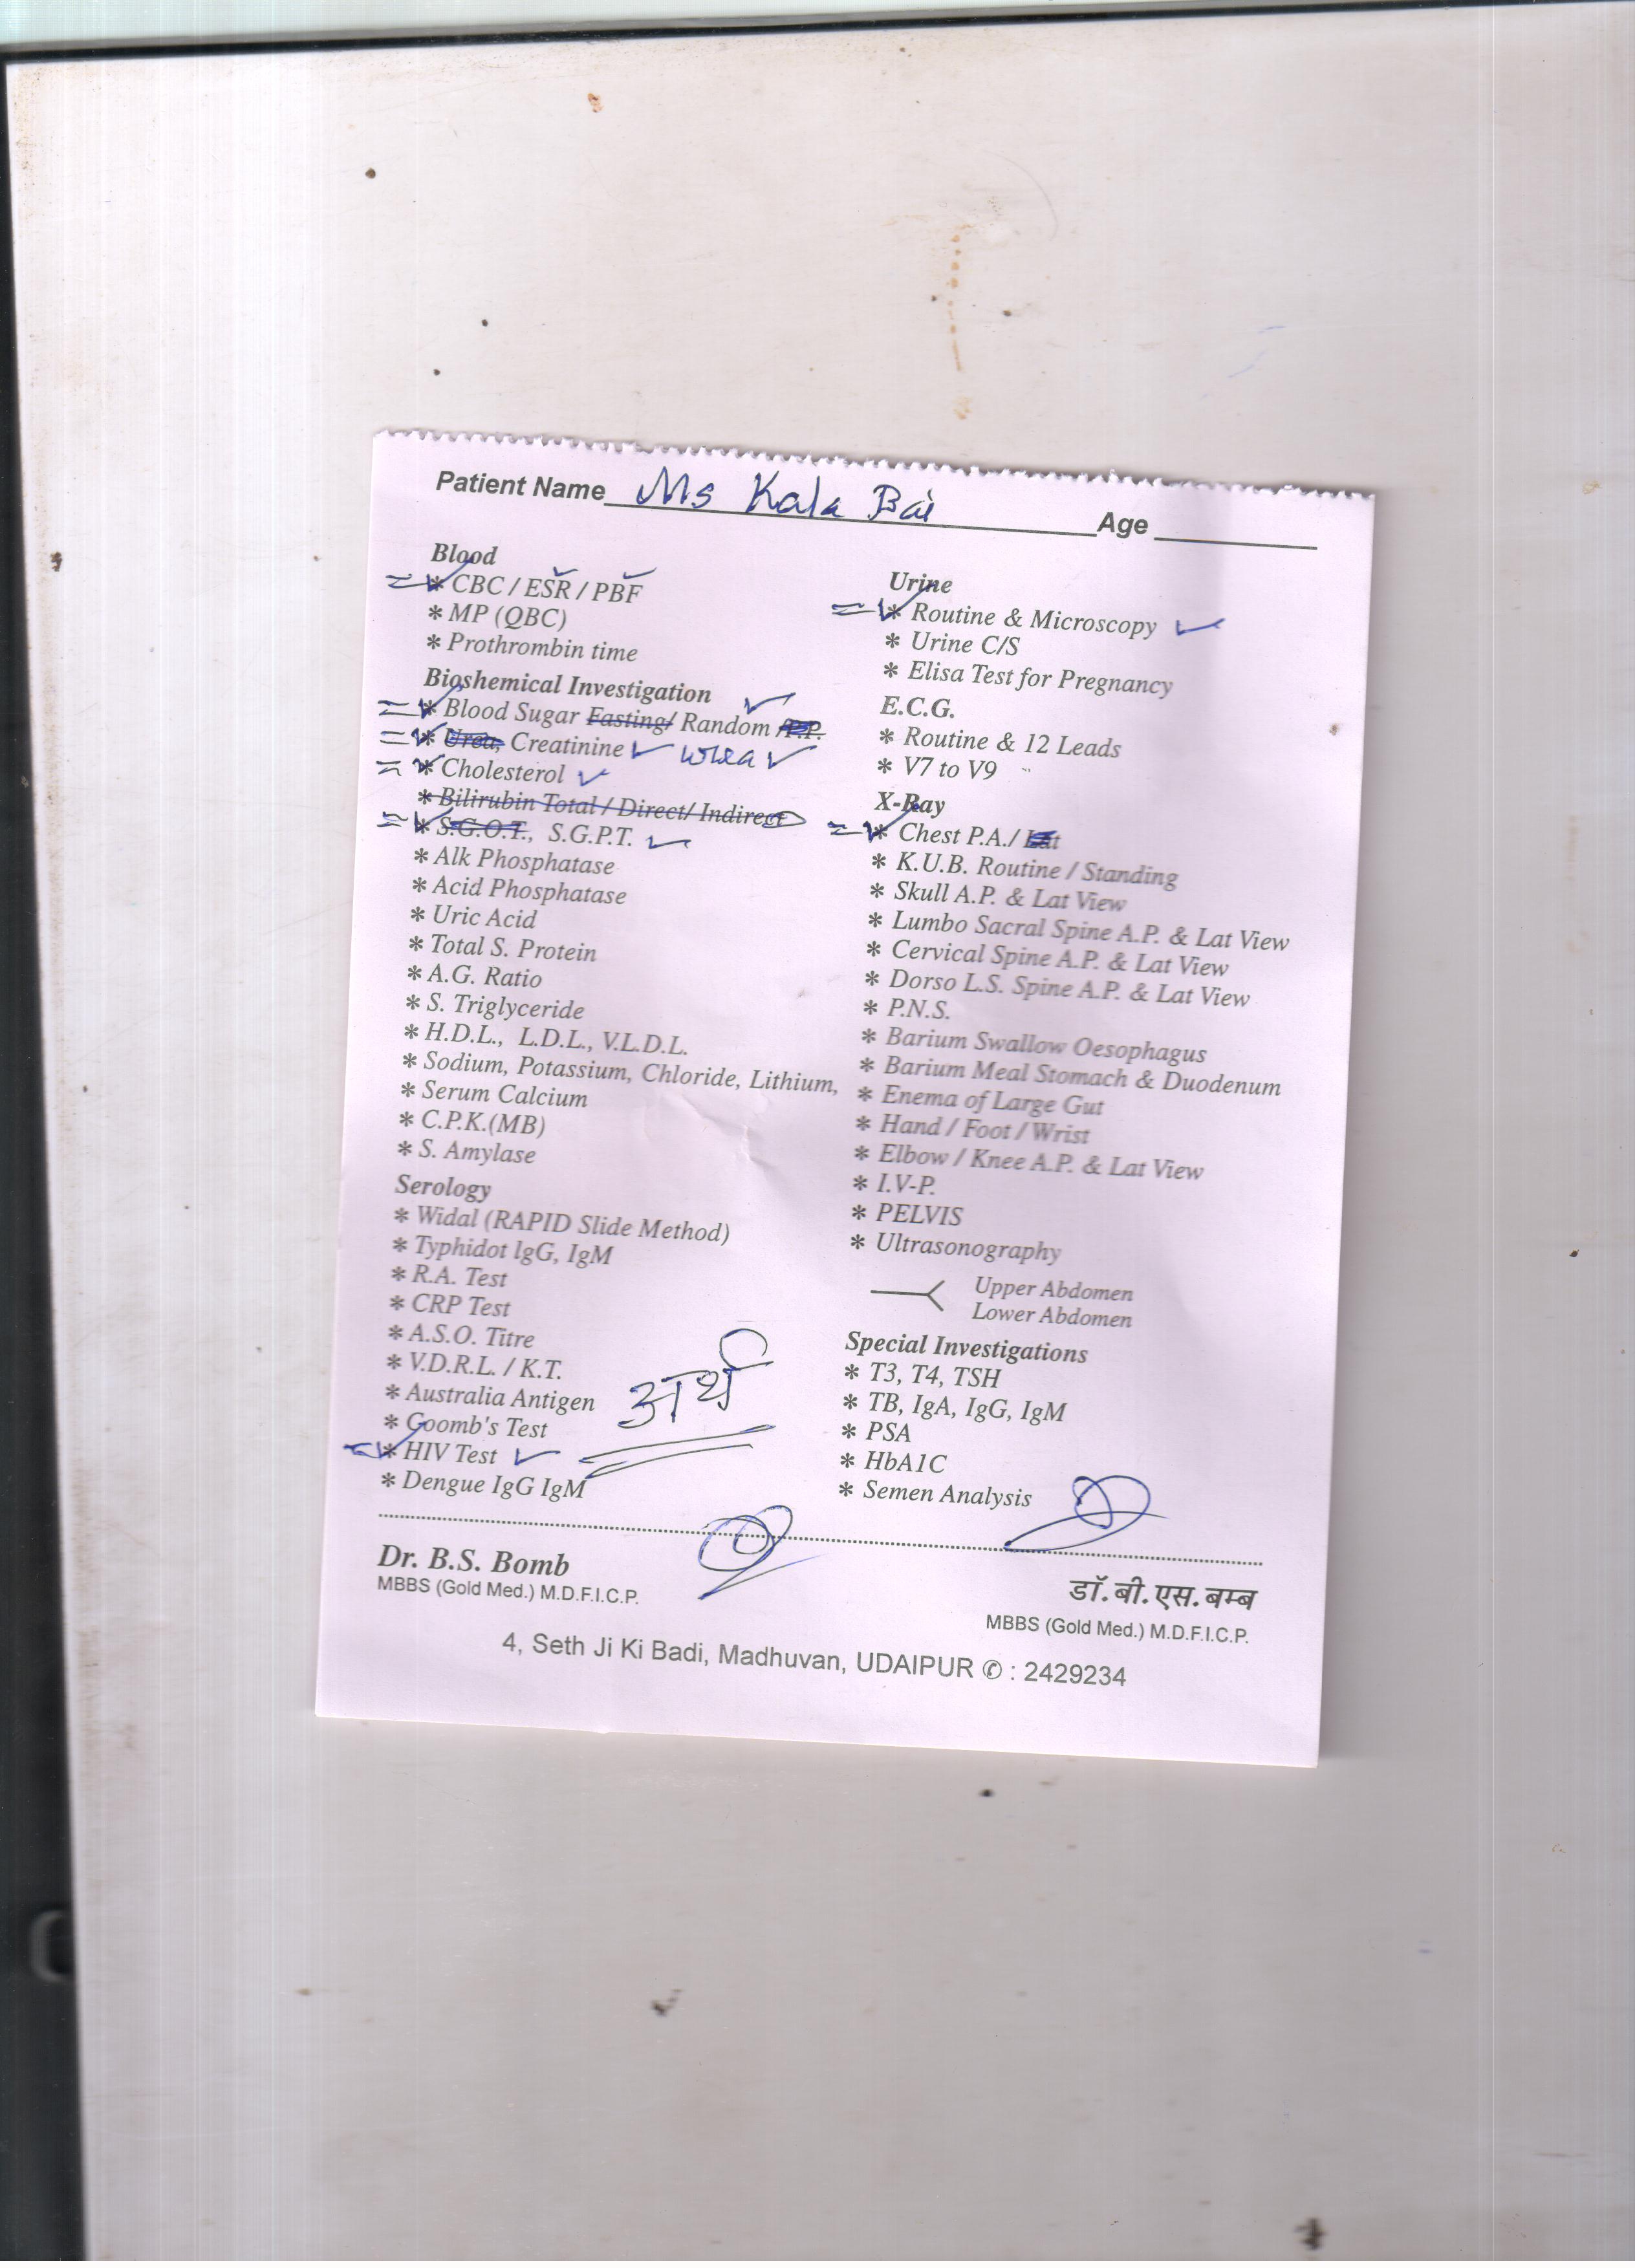 Patient Name Ms Kala Bai Age
Blood
* CBC / ESR / PBF
* MP (QBC)
* Prothrombin time
Bioshemical Investigation
* Blood Sugar Fasting/ Random /P.P.
* Urea, Creatinine urea
* Cholesterol
* Bilirubin Total / Direct/ Indirect
* S.G.O.T., S.G.P.T.
* Alk Phosphatase
* Acid Phosphatase
* Uric Acid
* Total S. Protein
* A.G. Ratio
* S. Triglyceride
* H.D.L., L.D.L., V.L.D.L.
* Sodium, Potassium, Chloride, Lithium,
* Serum Calcium
* C.P.K.(MB)
* S. Amylase
Serology
* Widal (RAPID Slide Method)
* Typhidot lgG, IgM
* R.A. Test
* CRP Test
* A.S.O. Titre
* V.D.R.L. / K.T.
* Australia Antigen
* Coomb's Test
* HIV Test
* Dengue IgG IgM
अर्थ
Urine
* Routine & Microscopy
* Urine C/S
* Elisa Test for Pregnancy
E.C.G.
* Routine & 12 Leads
* V7 to V9
X-Ray
* Chest P.A./ Lat
* K.U.B. Routine / Standing
* Skull A.P. & Lat View
* Lumbo Sacral Spine A.P. & Lat View
* Cervical Spine A.P. & Lat View
* Dorso L.S. Spine A.P. & Lat View
* P.N.S.
* Barium Swallow Oesophagus
* Barium Meal Stomach & Duodenum
* Enema of Large Gut
* Hand / Foot / Wrist
* Elbow / Knee A.P. & Lat View
* I.V-P.
* PELVIS
* Ultrasonography
Upper Abdomen
Lower Abdomen
Special Investigations
* T3, T4, TSH
* TB, IgA, IgG, IgM
* PSA
* HbA1C
* Semen Analysis
Dr. B.S. Bomb
MBBS (Gold Med.) M.D.F.I.C.P.
डॉ. बी. एस. बम्ब
MBBS (Gold Med.) M.D.F.I.C.P.
4, Seth Ji Ki Badi, Madhuvan, UDAIPUR ✆ : 2429234